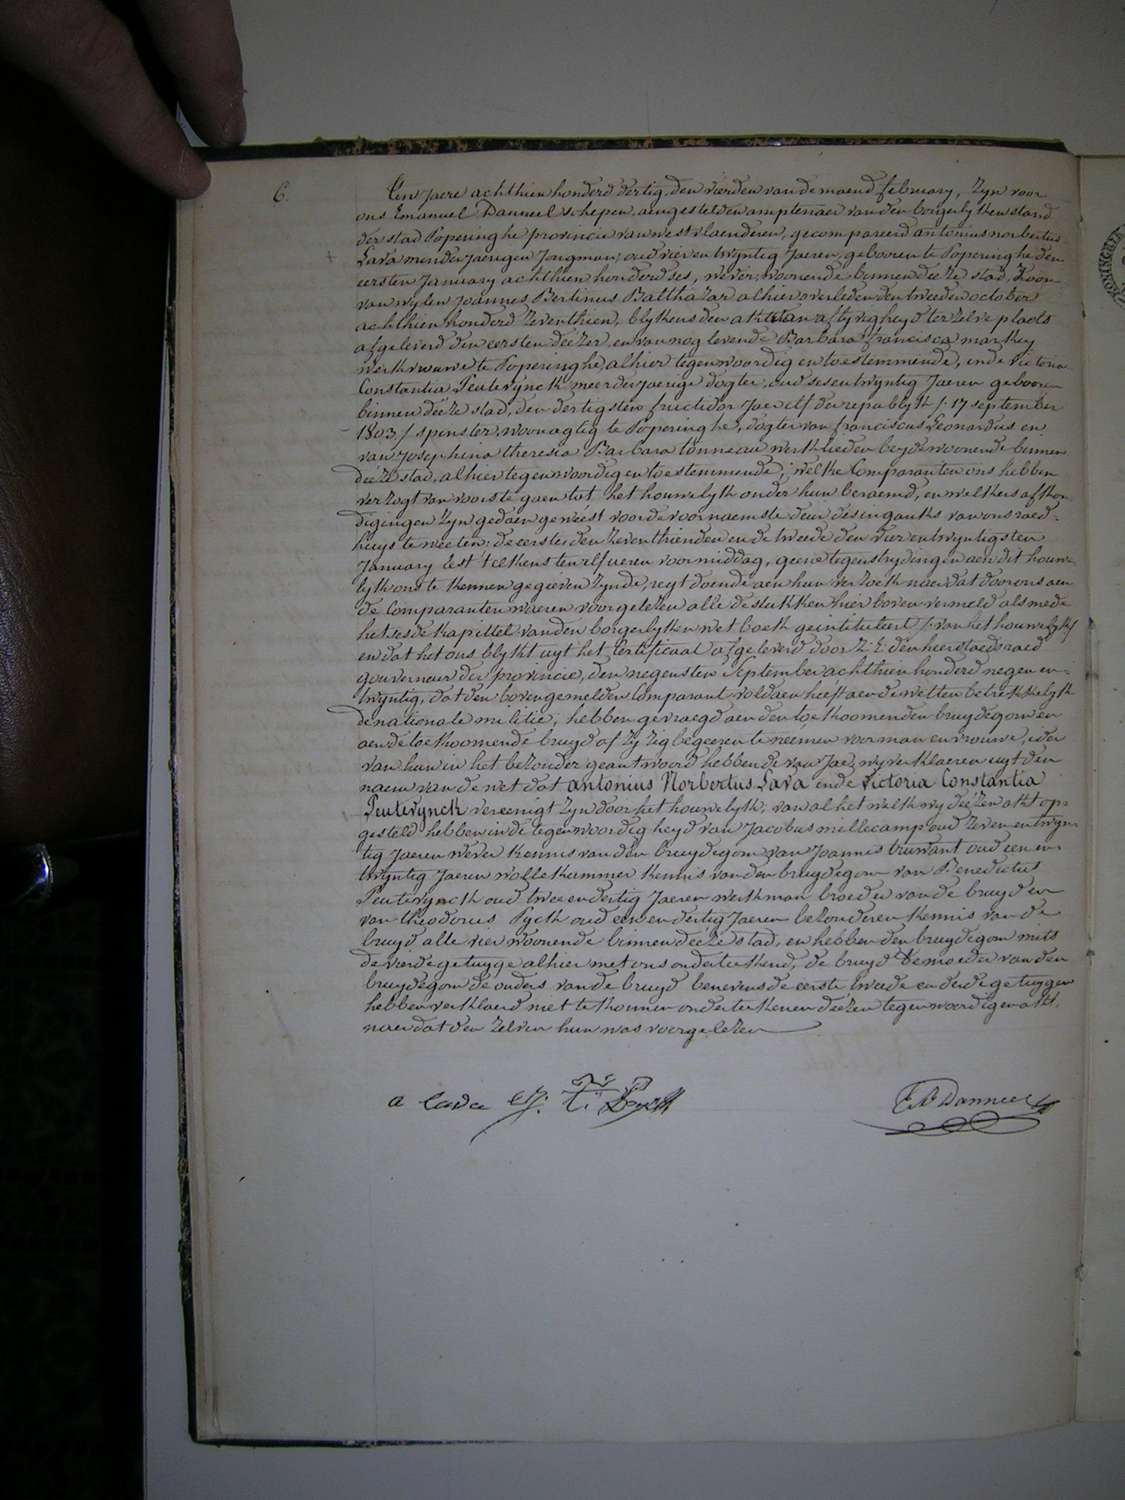 6.
Ten jaere achthien honderd dertig, den vierden van de maend february, zyn voor
ons Emanuel Danneel schepen, aengestelden amptenaer van den borgerlyken stand
der stad Poperinghe provincie van westvlaenderen, gecompareerd antonius norbertus
Lava minderjaerigen Jongman, oud vier en twyntig Jaeren, gebooren te Poperinghe den
eersten January achthien honderd ses, wever, woonende binnen deeze stad, Zoon
van wylen Joannes Bertinus Balthazar alhier overleden den tweeden october
achthien honderd zeventhien, blykens den akt van aflyvigheyd ter zelve plaets
afgeleverd den eersten deezer, en van nog levende Barbara francisca markey
werkvrauwe te Poperinghe, alhier tegenwoordig en toestemmende, ende victoria
Constantia Peuterynck meerderjaerige dogter, oud ses en twyntig Jaeren gebooren
binnen deeze stad, den dertigsten fructidor Jaer elf der republyk /: 17 september
1803 / spinster, woonagtig te Poperinghe, dogter van franciscus Leonardus en
van Josephina theresia Barbara tonneau werklieden beyde woonende binnen
deeze stad, alhier tegenwoordig en toestemmende; welke Comparanten ons hebben
verzogt van voorts te gaen tot het houwelyk onder hun beraemd, en welkers afkon
digingen zyn gedaen geweest voor de voornaemste deur des inganks van ons raed-
huys te weeten: de eerste den zeventhienden en de tweede den vier en twyntigsten
January lest telkens ten elf ueren voormiddag, geene tegenstrydingen aen dit houwe
lyk ons te kennen gegeeven zynde, regt doende aen hun verzoek naer dat door ons aen
de Comparanten waeren voorgelezen alle de stukken hier boven vermeld als mede
het sesde kapittel van den borgerlyken wet boek geintituleert /: van het houwelyk /
en dat het ons blykt uyt het Certificaat afgeleverd door Z: E: den heer staedsraed
gouverneur der provincie, den negensten September achthien honderd negen en
twyntig, dat den bovengemelden Comparant voldaen heeft aen de wetten betrekkelyk
de nationale militie, hebben gevraegd aen den toekoomenden bruydegom en
aen de toekoomende bruyd of zy zig begeeren te neemen voor man en vrouwe, ider
van hun in het bezonder geantwoord hebbende van Jae, wy verklaeren uyt den
naem van de wet dat antonius Norbertus Lava ende Victoria Constantia
Peuterynck vereenigt zyn door het houwelyk; van al het welk wy deezen akt op-
gesteld hebben in de tegenwoordigheyd van Jacobus millecamp oud zeven en twyn
tig Jaeren wever kennis van den bruydegom van Joannis bruwant oud een en
twyntig Jaeren wollekammer kennis van den bruydegom van Benedictus
Peuterynck oud twee en dertig Jaeren werkman broeder van de bruyd en
van theodorus Pyck oud een en dertig Jaeren bezonderen kennis van de
bruyd alle vier woonende binnen deeze stad, en hebben den bruydegom mits
de vierde getuyge alhier met ons onderteekend, de bruyd de moeder van den
bruydegom de ouders van de bruyd benevens de eerste tweede en derde getuygen
hebben verklaerd niet te konnen onderteekenen deezen tegenwoordigen akt
naer dat den zelven hun was voorgelezen
a lava T: Pyck E. Danneel